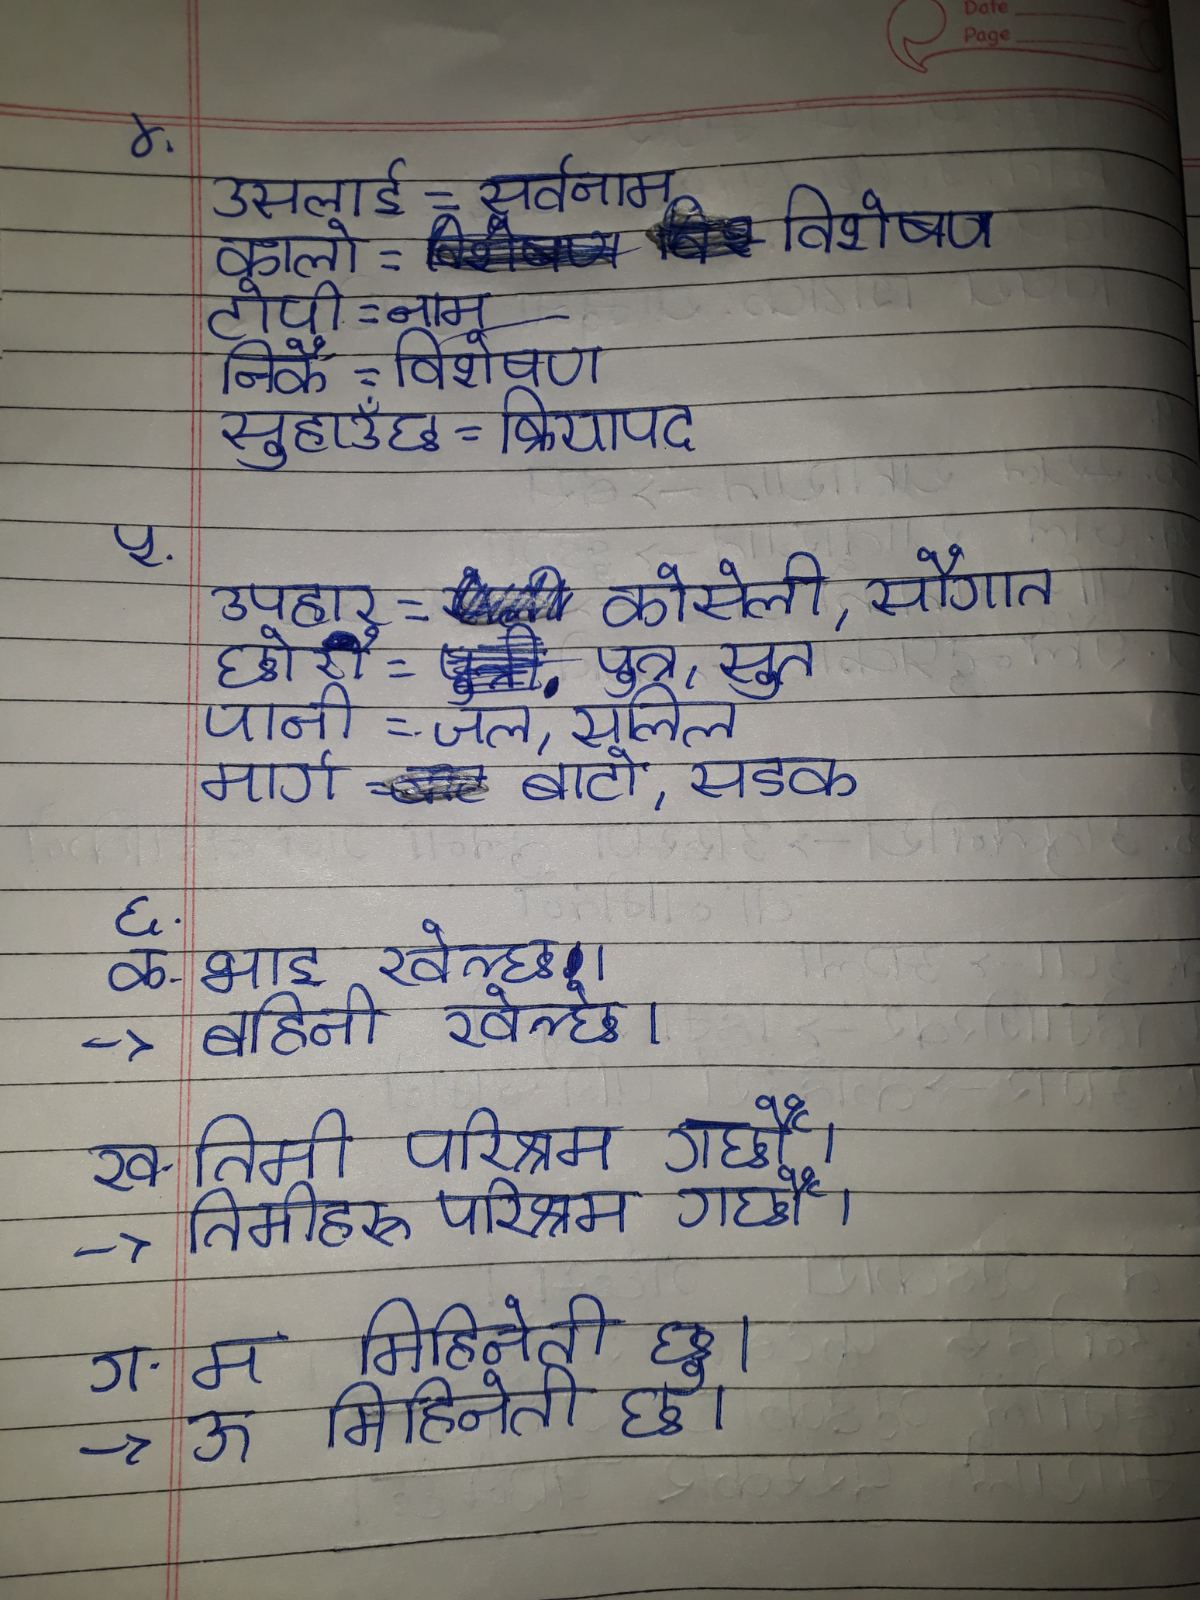 Date
Page
४.
उसलाई = सर्वनाम
कालो = विशेषण
टोपी = नाम
निकै = विशेषण
सुहाउँछ = क्रियापद
५.
उपहार = कोसेली, सौगात
छोरो = पुत्र, सुत
पानी = जल, सलिल
मार्ग = बाटो, सडक
६.
क- भाइ खेल्छ।
-> बहिनी खेल्छे।
ख- तिमी परिश्रम गर्छौ।
-> तिमीहरू परिश्रम गर्छौ।
ग- म मिहिनेती छु।
-> ऊ मिहिनेती छ।